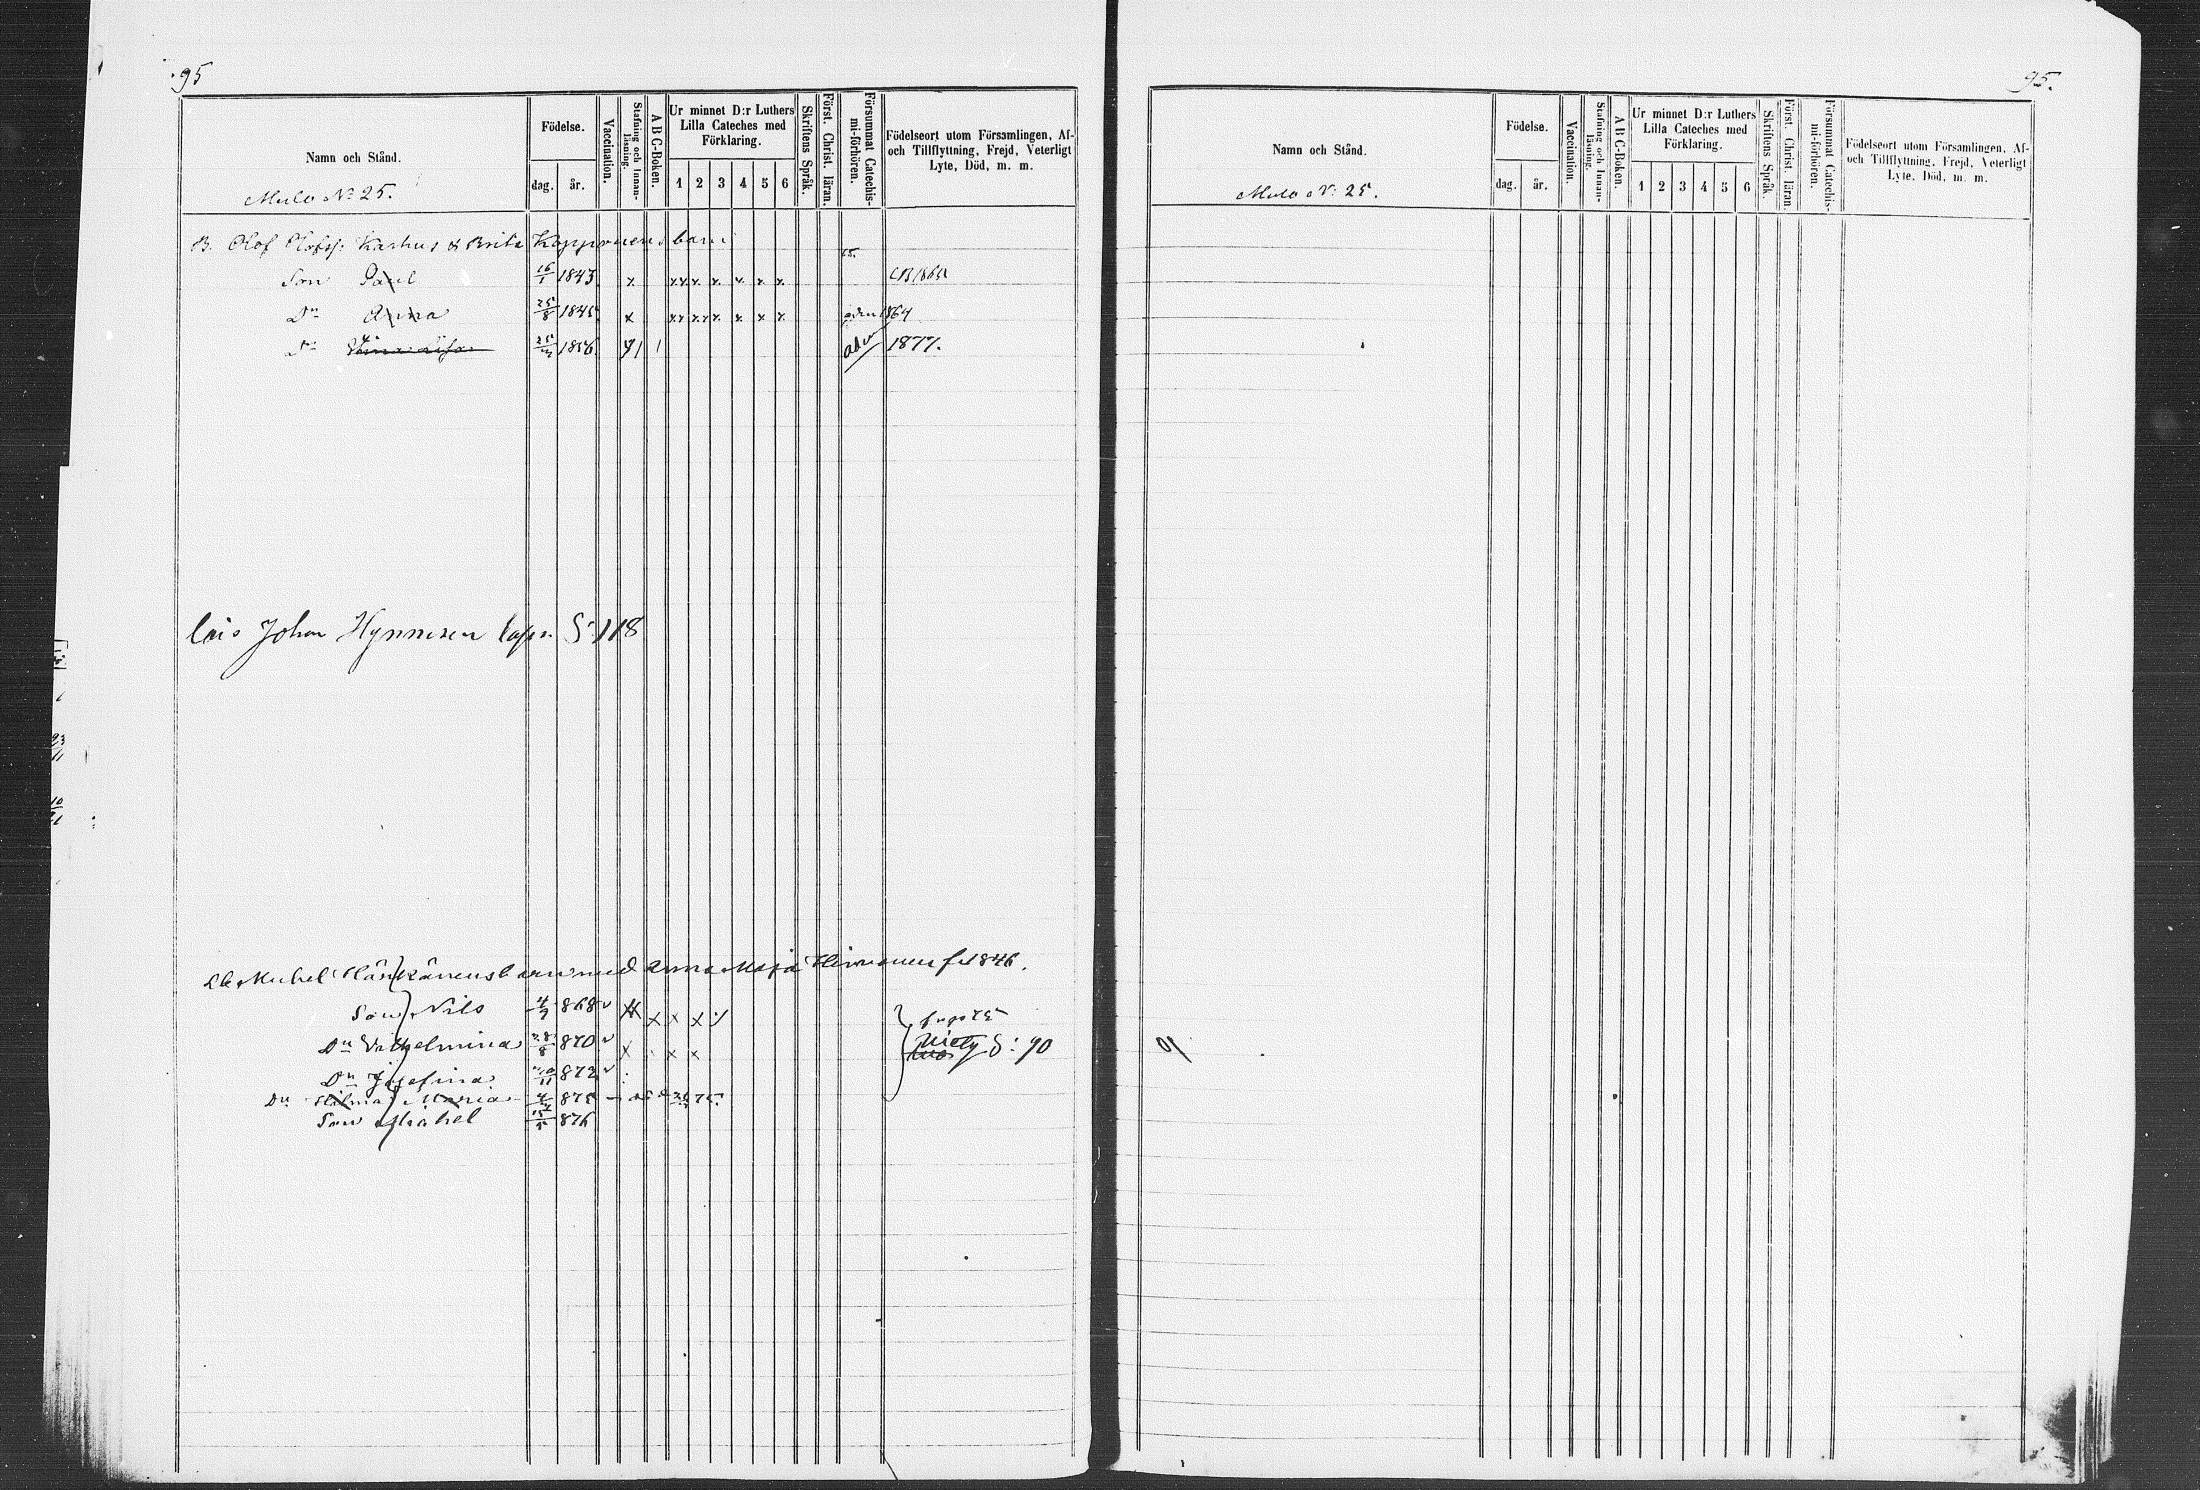 95
Namn och Stånd.
Födelse.
dag. år.
Vaccination.
Stafning och Innan-läsning.
A B C-Boken.
Ur minnet D:r Luthers
Lilla Cateches med
Förklaring.
1 2 3 4 5 6
Skriftens Språk.
Först. Christ. läran.
Försummat Catechis-mi-förhören.
Födelseort utom Församlingen, Af-
och Tillflyttning, Frejd, Veterligt
Lyte, Död, m. m.
Mulo No 25.
B. Olof Olofss. Karhus & Brita Kopponens barn
Son Paul 16/1 1843 x x x x x x x x
Dn Anna 25/8 1845 x x x x x x x x 1864
Dn 1856 adm 1877.
Johan Hynninen S. 118
Michel barn med Anna Maja Hirvonen f. 1846.
Son Nils 4/7 868 v x x x
Dn Vilhelmina 28/8 870 v x x x
S: 90
Dn Josefina 872 v
Dn Hilma Maria 875 75.
Son Mikhel 876
95.
Namn och Stånd.
Födelse.
dag. år.
Vaccination.
Stafning och Innan-läsning.
A B C-Boken.
Ur minnet D:r Luthers
Lilla Cateches med
Förklaring.
1 2 3 4 5 6
Skriftens Språk.
Först. Christ. läran.
Försummat Catechis-mi-förhören.
Födelseort utom Församlingen, Af-
och Tillflyttning, Frejd, Veterligt
Lyte, Död, m. m.
Mulo No 25.